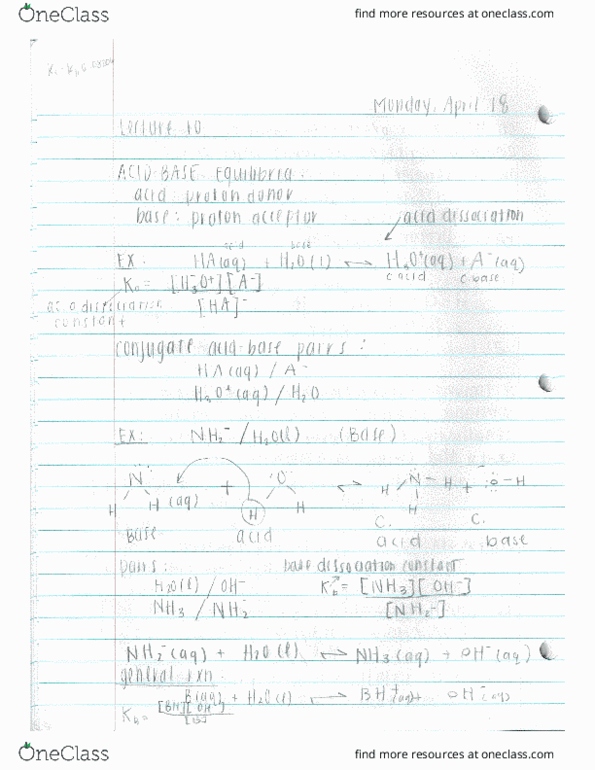 OneClass
find more resources at oneclass.com
Monday, April 18
Lecture 10
ACID-BASE Equilibria
acid: proton donor
base: proton acceptor
acid dissociation
acid base
EX. HA(aq) + H2O(l) ⇌ H3O+(aq) + A-(aq)
c acid c base
Ka = [H3O+][A-]
[HA]
acid dissociation
constant
conjugate acid-base pairs:
HA(aq) / A-
H3O+(aq) / H2O
EX: NH2- / H2O(l) (Base)
N O N
H H (aq) + H H ⇌ H H + O-H
H
C. C.
Base acid acid base
pairs: base dissociation constant
H2O(l) / OH- Kb = [NH3][OH-]
NH3 / NH2- [NH2-]
NH2-(aq) + H2O(l) ⇌ NH3(aq) + OH-(aq)
general rxn
B(aq) + H2O(l) ⇌ BH+(aq) + OH-(aq)
Kb = [BH][OH-]
[B]
OneClass
find more resources at oneclass.com